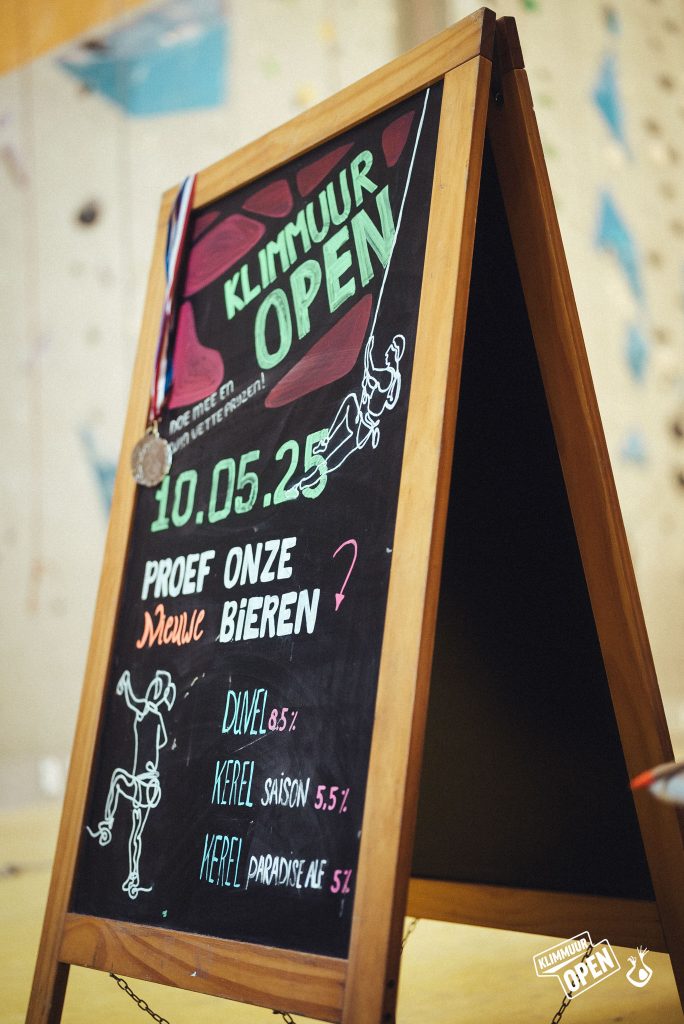 KLIMMUUR
OPEN
DOE MEE EN
WIN VETTE PRIJZEN!
10.05.25
PROEF ONZE
Nieuwe BiEREN
DUVEL 8.5%
KEREL SAiSON 5,5%
KEREL PARADISE ALE 5%
KLIMMUUR
OPEN